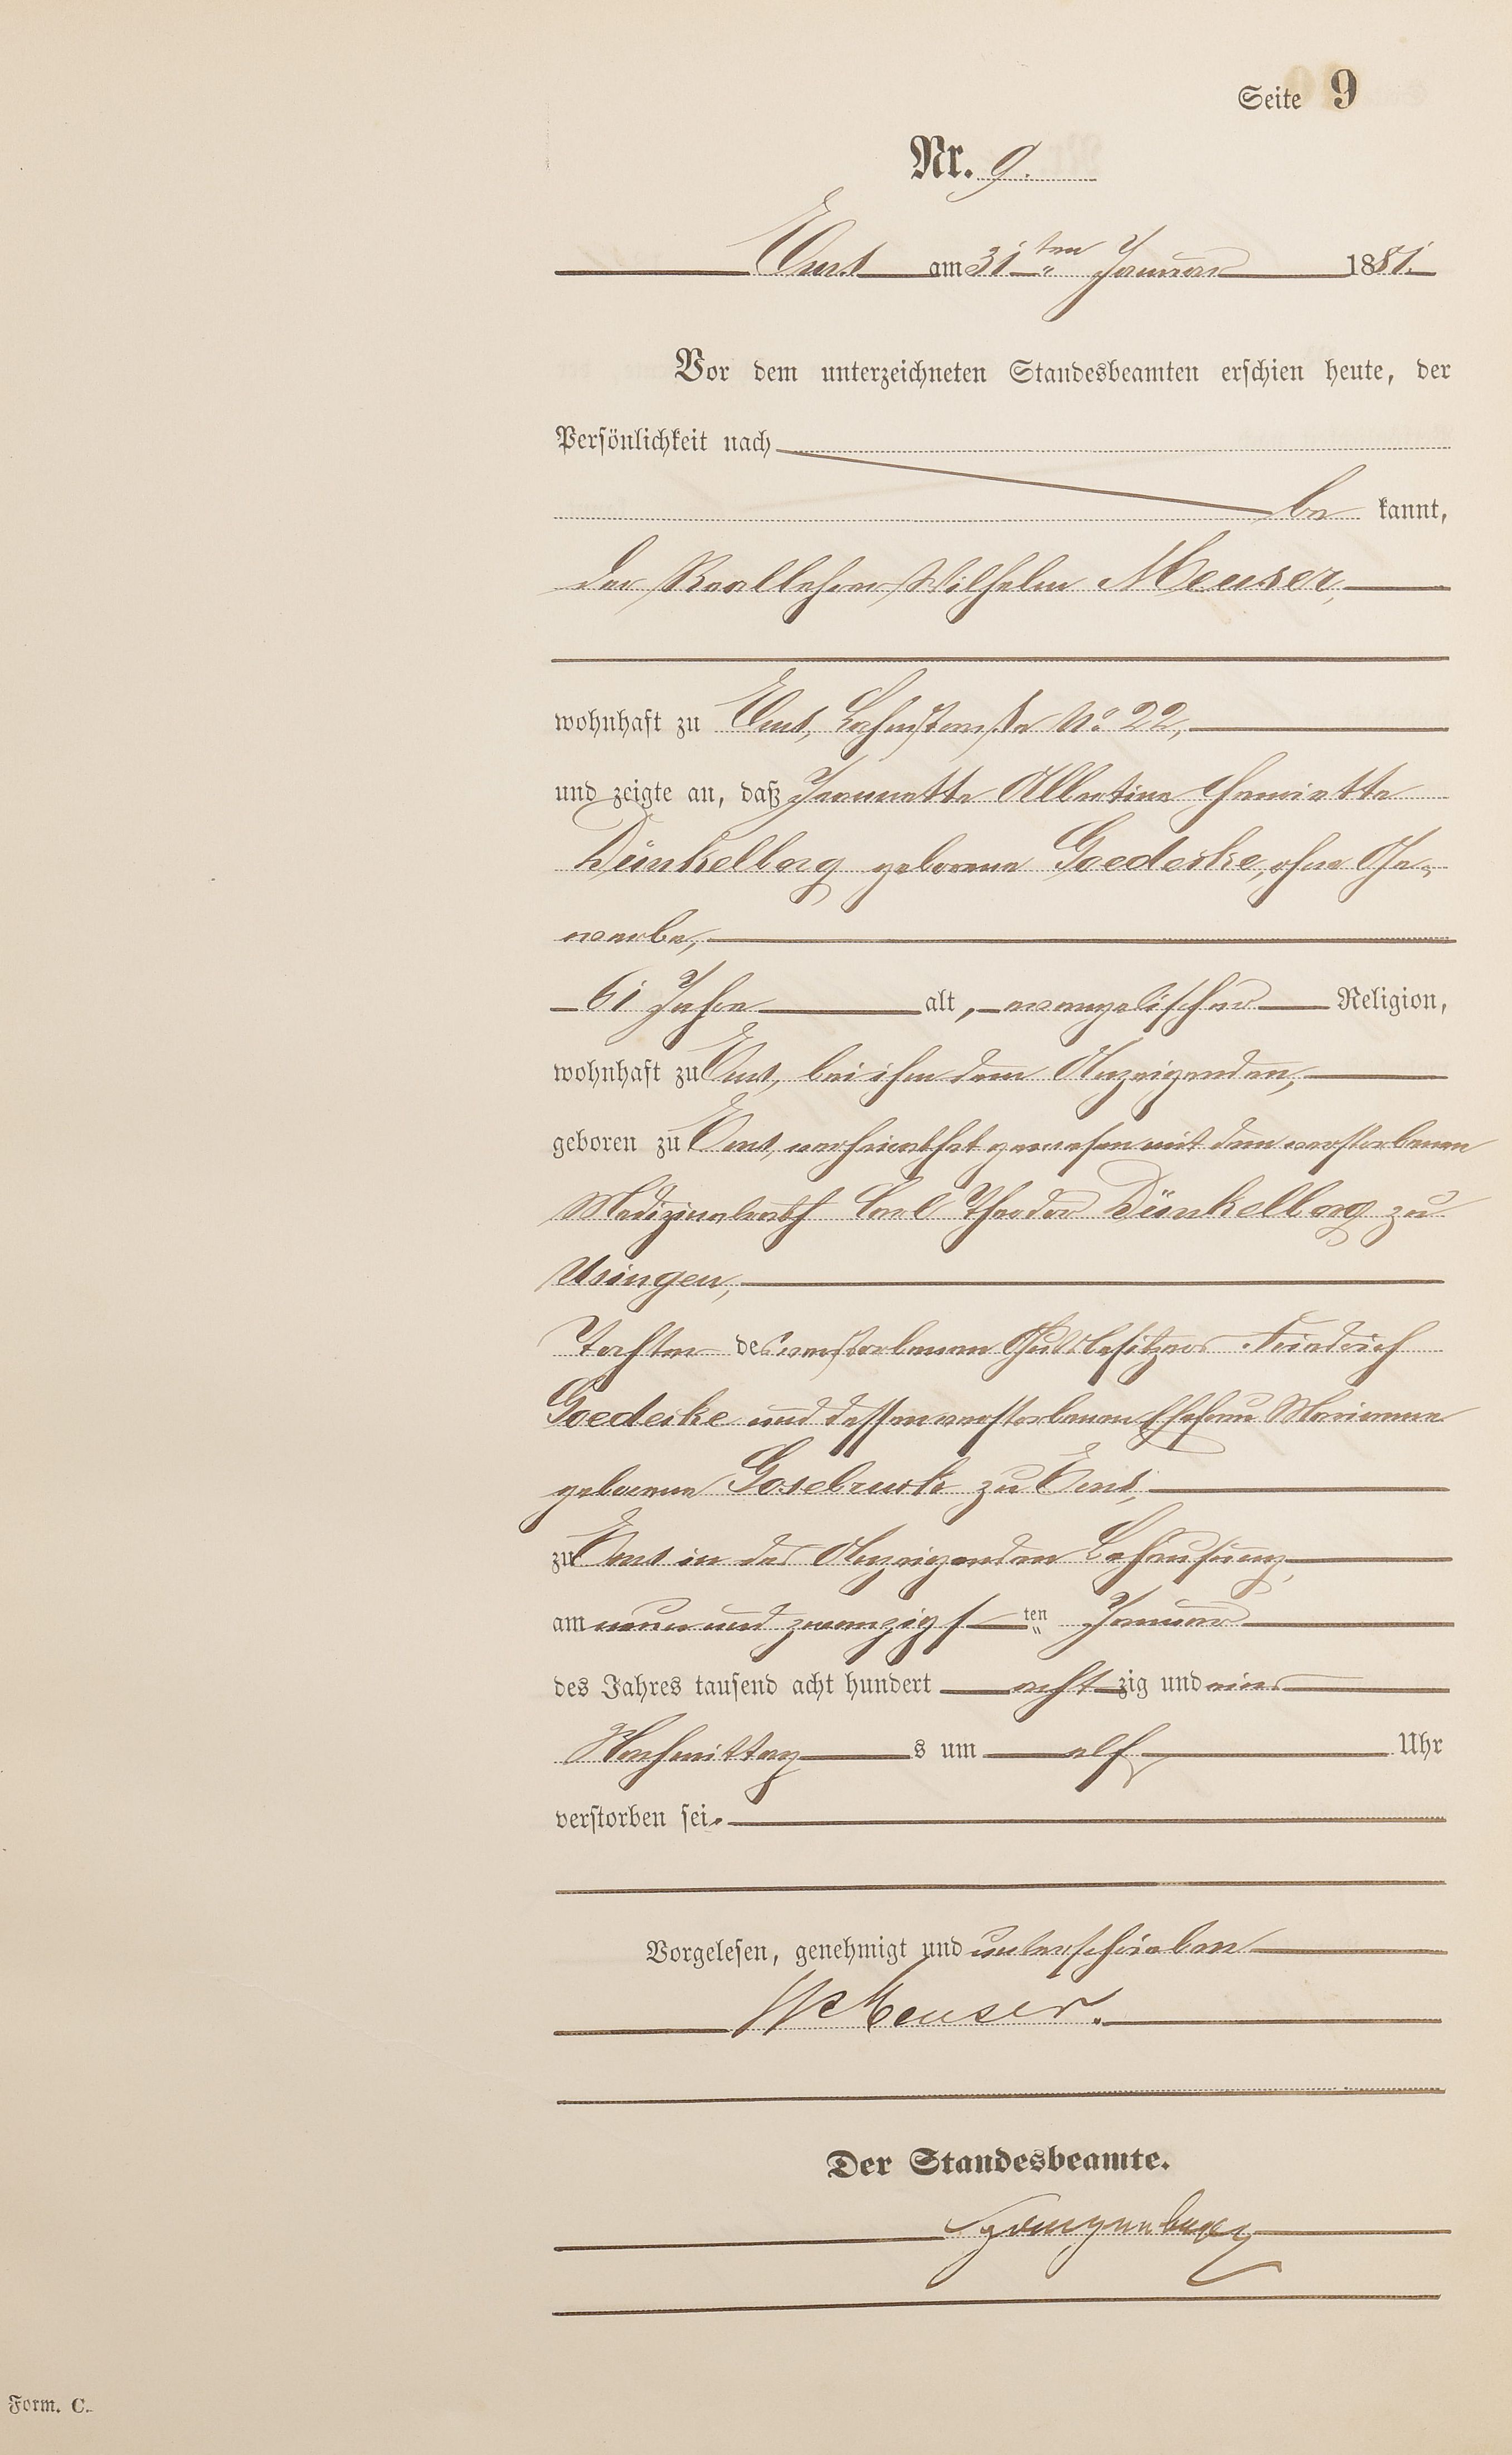 Seite 9
Nr. 9.
Ems am 31ten Januar 1881.
Vor dem unterzeichneten Standesbeamten erschien heute, der
Persönlichkeit nach
be kannt,
der Reallehrer Wilhelm Meuser,
wohnhaft zu Ems, Lahnstraße No. 22,
und zeigte an, daß Jeannette Albertine Henriette
Dünkelberg geborene Goedecke, ohne Ge-
werbe,
61 Jahre alt, evangelischer Religion,
wohnhaft zu Ems, bei ihm dem Anzeigenden,
geboren zu Ems, verheirathet gewesen mit dem verstorbenen
Medizinalrath Carl Theodor Dünkelberg zu
Usingen,
Tochter des verstorbenen Gutsbesitzers Friedrich
Goedecke und dessen verstorbenen Ehefrau Marianne
geborene Gosebruch zu Ems,
zu Ems in des Anzeigenden Behausung,
am neun und zwanzigsten Januar
des Jahres tausend acht hundert achtzig und eins
Nachmittags um elf Uhr
verstorben sei.
Vorgelesen, genehmigt und unterschrieben
W Meuser.
Der Standesbeamte.
Form. C.